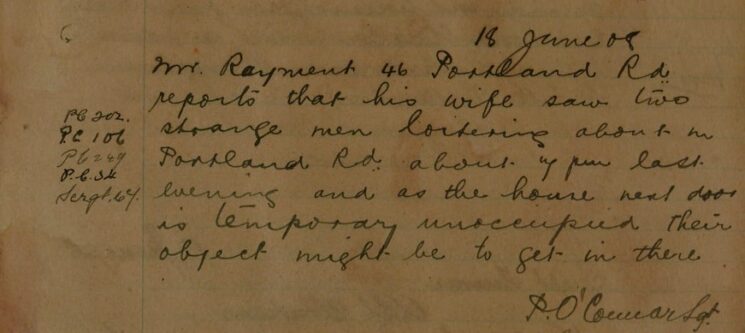 18 June 08
Mr. Rayment 46 Portland Rd.
reports that his wife saw two
strange men loitering about in
Portland Rd. about pm last
evening and as the house next door
is temporary unoccupied their
object might be to get in there
P. O'Connor Sgt.
PC 202.
P.C 106
PC 249
P.C. 34
Sergt. 64.